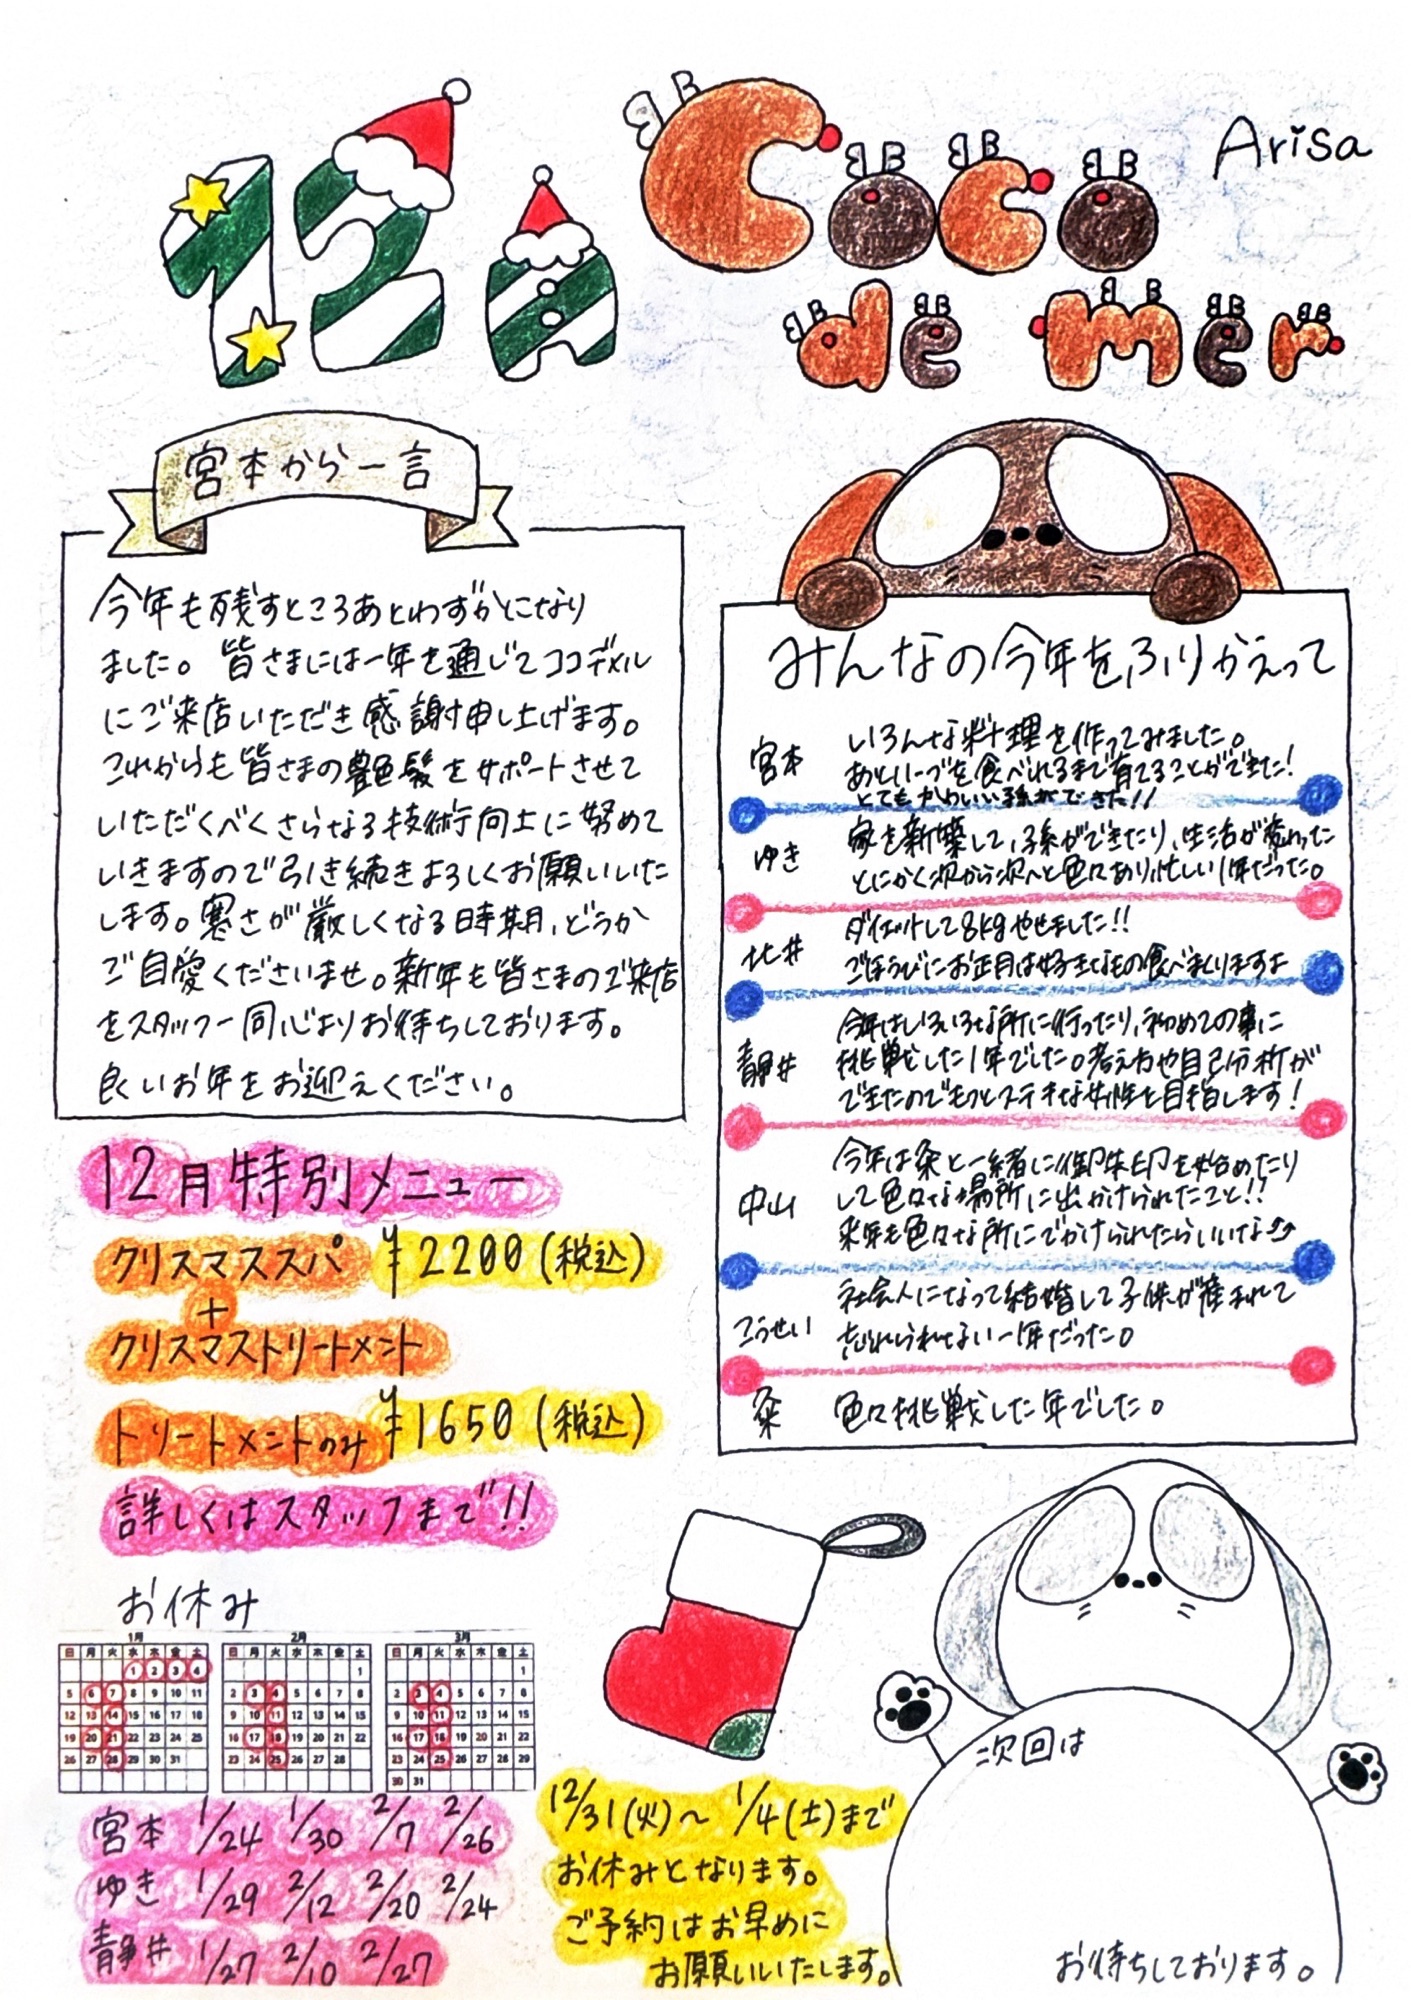 12月
Coco
de mer
Arisa
宮本から一言
今年も残すところあとわずかとになり
ました。皆さまには一年を通じてココデメル
にご来店いただき感謝申し上げます。
これからも皆さまの艶髪をサポートさせて
いただくべくさらなる技術向上に努めて
いきますので引き続きよろしくお願いいた
します。寒さが厳しくなる時期、どうか
ご自愛くださいませ。新年も皆さまのご来店
をスタッフ一同心よりお待ちしております。
良いお年をお迎えください。
みんなの今年をふりかえって
宮本
いろんな料理を作ってみました。
あといーづを食べれるまで育てることができた!
とてもかわいい孫ができた!!
ゆき
家を新築して、孫ができたり、生活が変わった
とにかく次から次へと色々あり忙しい1年だった。
北井
ダイエットして8kgやせました!!
ごほうびにお正月は好きなもの食べまくりますよ
青井
今年はいろいろな所に行ったり、初めての事に
挑戦した1年でした。考え方や自己分析が
できたのでもっとステキな女性を目指します!
中山
今年は粂と一緒に御朱印を始めたり
して色々な場所に出かけられたこと!!
来年も色々な所にでかけられたらいいな
こうせい
社会人になって結婚して子供が産まれて
忘れられない一年だった。
粂
色々挑戦した年でした。
12月特別メニュー
クリスマススパ ¥2200(税込)
+
クリスマストリートメント
トリートメントのみ ¥1650(税込)
詳しくはスタッフまで!!
お休み
1月
日 月 火 水 木 金 土
1 2 3 4
5 6 7 8 9 10 11
12 13 14 15 16 17 18
19 20 21 22 23 24 25
26 27 28 29 30 31
2月
日 月 火 水 木 金 土
1
2 3 4 5 6 7 8
9 10 11 12 13 14 15
16 17 18 19 20 21 22
23 24 25 26 27 28
3月
日 月 火 水 木 金 土
1
2 3 4 5 6 7 8
9 10 11 12 13 14 15
16 17 18 19 20 21 22
23 24 25 26 27 28 29
30 31
宮本 1/24 1/30 2/7 2/26
ゆき 1/29 2/12 2/20 2/24
青井 1/27 2/10 2/27
12/31(火)~1/4(土)まで
お休みとなります。
ご予約はお早めに
お願いいたします。
次回は
お待ちしております。